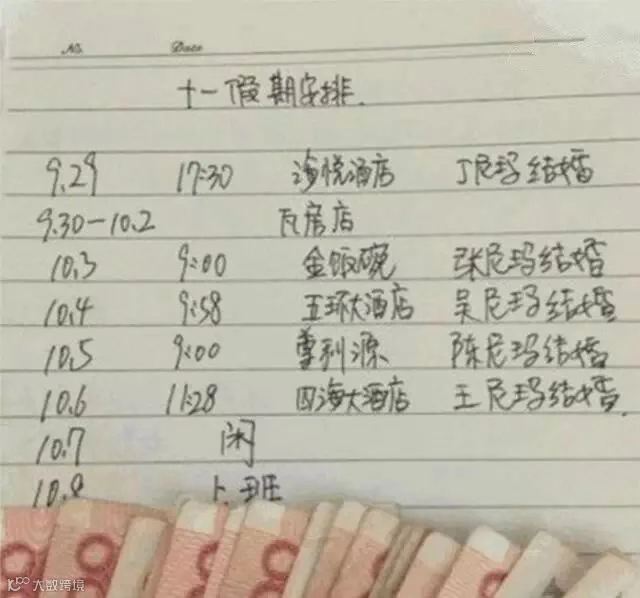 No. Date
十一假期安排.
9.29 17:30 海悦酒店 丁尼玛结婚
9.30-10.2 瓦房店
10.3 9:00 金饭碗 张尼玛结婚
10.4 9:58 五环大酒店 吴尼玛结婚
10.5 9:00 尊利源 陈尼玛结婚
10.6 11:28 四海大酒店 王尼玛结婚.
10.7 闲
10.8 上班
大数跨境